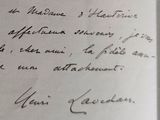 et Madame d'Hauterive
affectueux souvenir, je vous
cher ami, la fidèle
mon attachement.
Henri Lavedan